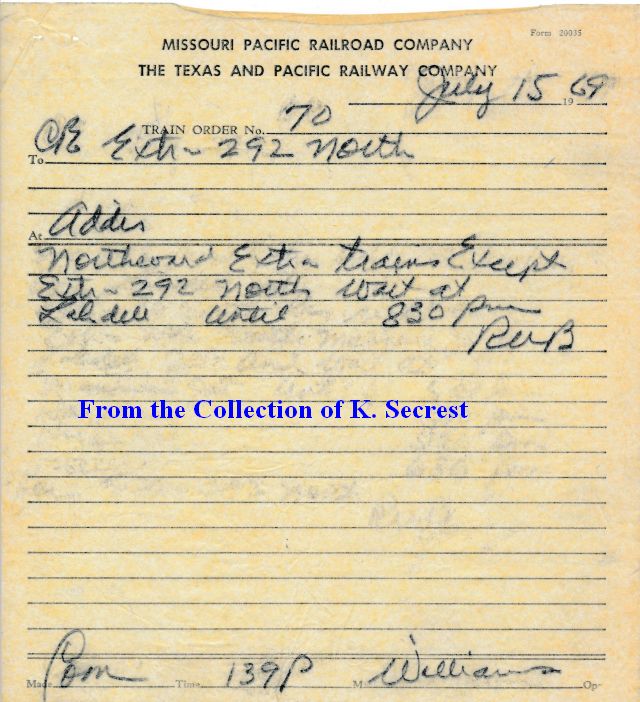 Form 20035
MISSOURI PACIFIC RAILROAD COMPANY
THE TEXAS AND PACIFIC RAILWAY COMPANY
July 15 19 69
TRAIN ORDER No. 70
To C&E Extra 292 North
At Addis
Northward Extra trains Except
Extra 292 North wait at
Lobdell until 830 pm
RWB
From the Collection of K. Secrest
Made Com Time 139P M Williams Op-